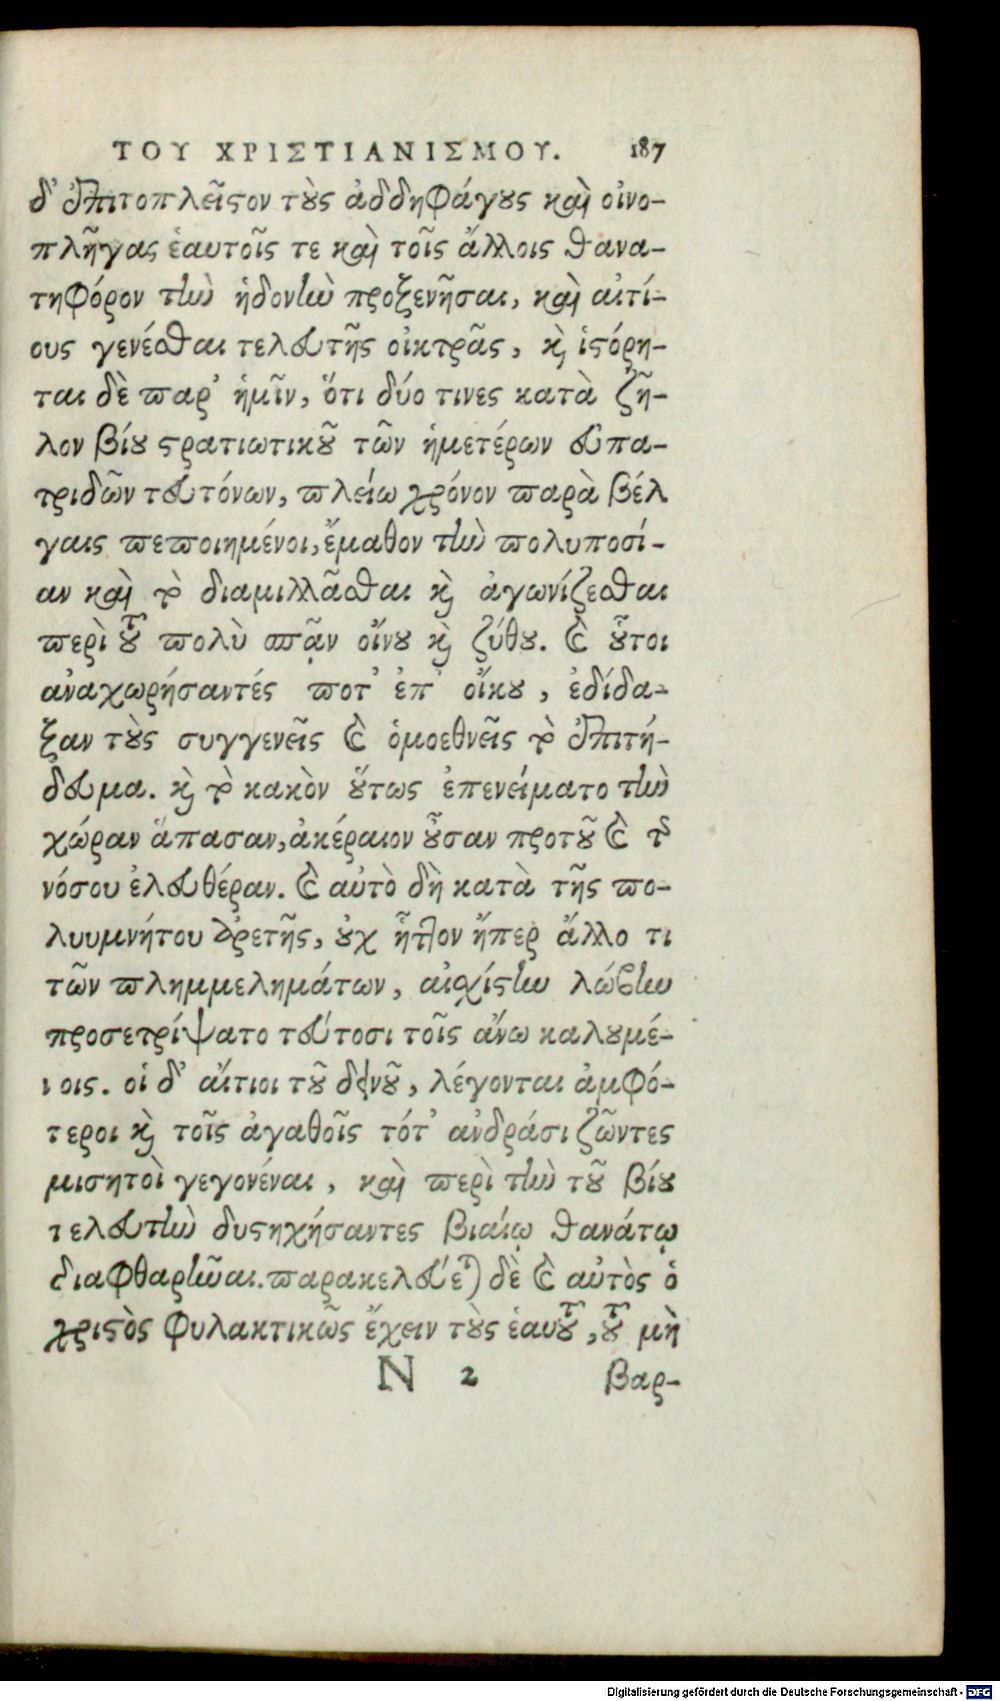 ΤΟΥ ΧΡΙΣΤΙΑΝΙΣΜΟΥ. 187
δ' ἐπιτοπλεῖστον τοὺς ἀδδηφάγους καὶ οἰνο-
πλῆγας ἑαυτοῖς τε καὶ τοῖς ἄλλοις θανα-
τηφόρον τὴν ἡδονὴν προξενῆσαι, καὶ αἰτί-
ους γενέσθαι τελευτῆς οἰκτρᾶς, καὶ ἱστόρη-
ται δὲ παρ' ἡμῖν, ὅτι δύο τινες κατὰ ζῆ-
λον βίου στρατιωτικοῦ τῶν ἡμετέρων εὐπα-
τριδῶν τευτόνων, πλείω χρόνον παρὰ βέλ
γαις πεποιημένοι, ἔμαθον τὴν πολυποσί-
αν καὶ τὸ διαμιλλᾶσθαι καὶ ἀγωνίζεσθαι
περὶ τοῦ πολὺ σπᾷν οἴνου καὶ ζύθου. καὶ οὗτοι
ἀναχωρήσαντές ποτ' ἐπ' οἴκου, ἐδίδα-
ξαν τοὺς συγγενεῖς καὶ ὁμοεθνεῖς τὸ ἐπιτή-
δευμα. καὶ τὸ κακὸν οὕτως ἐπενείματο τὴν
χώραν ἅπασαν, ἀκέραιον οὖσαν προτοῦ καὶ τῆς
νόσου ἐλευθέραν. καὶ αὐτὸ δὴ κατὰ τῆς πο-
λυυμνήτου ἀρετῆς, οὐχ ἧττον ἤπερ ἄλλο τι
τῶν πλημμελημάτων, αἰσχίστην λώβην
προσετρίψατο τεύτοσι τοῖς ἄνω καλουμέ-
νοις. οἱ δ' αἴτιοι τοῦ δεινοῦ, λέγονται ἀμφό-
τεροι καὶ τοῖς ἀγαθοῖς τότ' ἀνδράσι ζῶντες
μισητοὶ γεγονέναι, καὶ περὶ τὴν τοῦ βίου
τελευτὴν δυστηχήσαντες βιαίῳ θανάτῳ
διαφθαρῆναι. παρακελεύεται δὲ καὶ αὐτὸς ὁ
χριστὸς φυλακτικῶς ἔχειν τοὺς ἑαυτοῦ, τοῦ μὴ
N 2 βαρ-
Digitalisierung gefördert durch die Deutsche Forschungsgemeinschaft - DFG